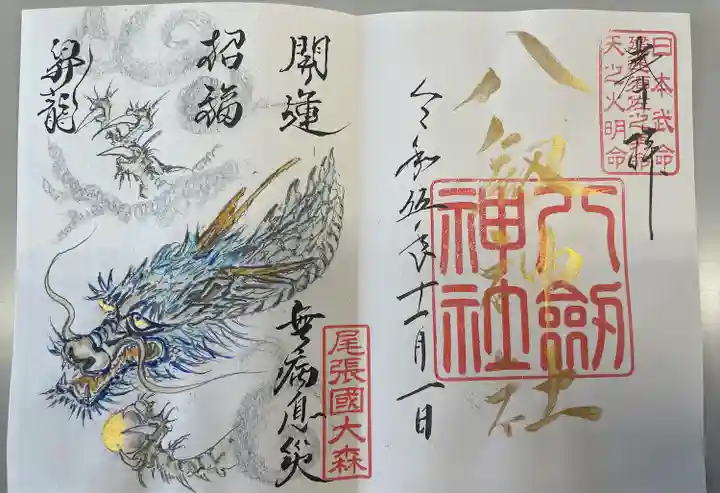 奉拝
日本武命
天之火明命
八剱神社
八劔
神社
令和伍年十一月一日
開運
招福
昇龍
無病息災
尾張國大森